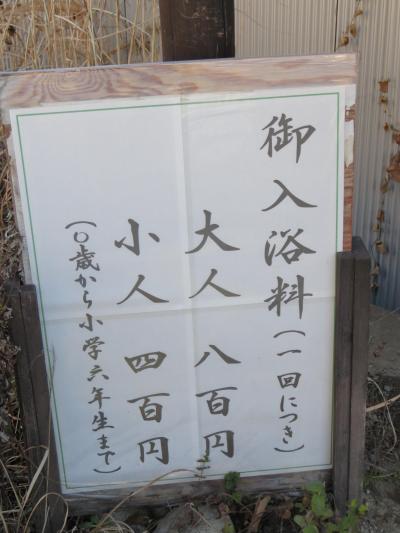 御入浴料（一回につき）
大人　八百円
小人　四百円
（〇歳から小学六年生まで）